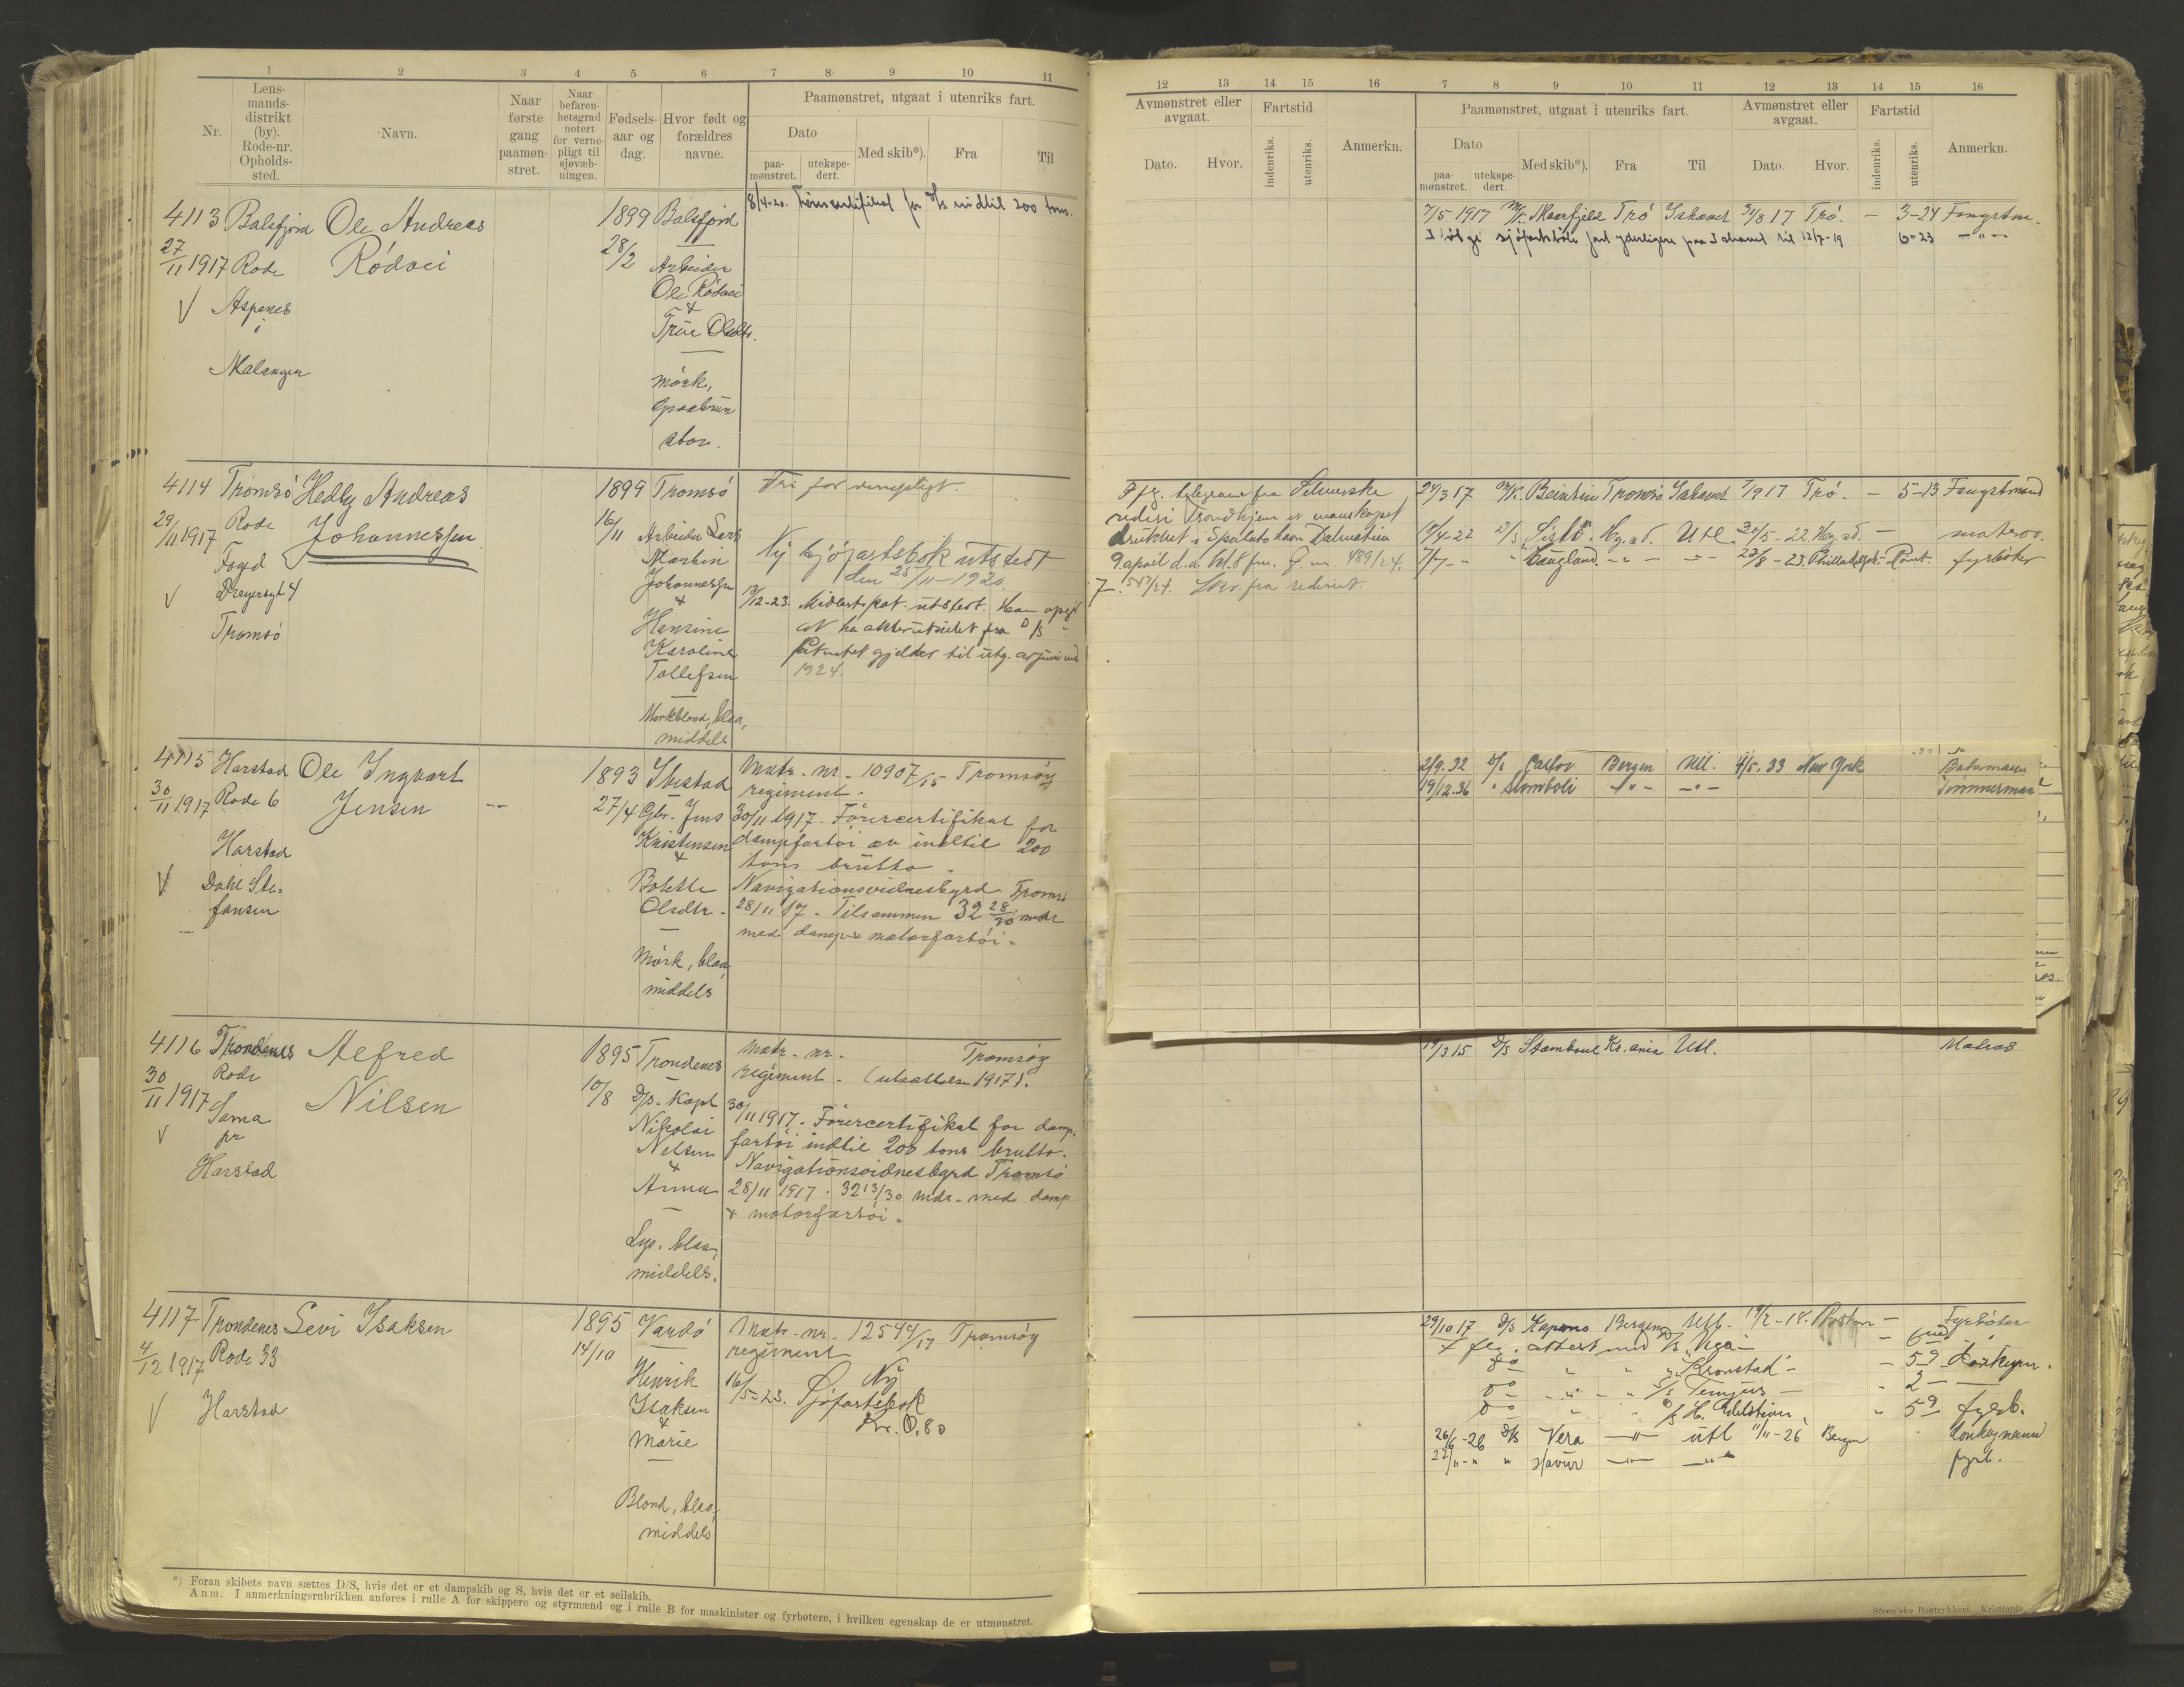 1 2 3 4 5 6 7 8 9 10 11
Nr.
Lens-
mands-
distrikt
(by).
Rode-nr.
Opholds-
sted.
Navn.
Naar
første
gang
paamøn-
stret.
Naar
befaren-
hetsgrad
notert
for verne-
pligt til
sjøvæb-
ningen.
Fødsels-
aar og
dag.
Hvor født og
forældres
navne.
Paamønstret, utgaat i utenriks fart.
Dato
paa-
mønstret.
utekspe-
dert.
Med skib*).
Fra
Til
4113 Balsfjord Ole Andreas 1899 Balsfjord 8/4-20. for D/S indtil 200 tons.
27/11 1917 Rode Rödvei 28/2 Arbeider
V Aspenes Ole Rödvei
i &
Trine Olsdtr.
Malangen
mörk,
graabrun
stor.
4114 Tromsö Hedly Andreas 1899 Tromsö Fri for vernepligt.
29/11 1917 Rode Johannessen 16/11 Arbeider Lars
Foged Martin Ny sjöfartsbok utstedt
V Dreyersgt 4 Johannessen den 25/11-1920.
Tromsö & 13/12-23. utstedt. Han opgir
Hansine at ha fra D/S
Karoline gjelder til utg. av juni md
Tollefsen 1924.
Mörkblond, blaa,
middels
4115 Harstad Ole Ingvart 1893 Ibestad Matr. nr. 10907/15 Tromsöy
30/11 1917 Rode 6 Jensen -- 27/4 Gbr. Jens regiment.
Harstad Kristensen 30/11 1917. Förercertifikat for
& dampfartöi av indtil 200
tons brutto.
V Dahl Ste- Bolette Navigationsvidnesbyrd Tromsö
fansen Olsdtr. 28/11 17. Tilsammen 32 28/30 mdr
med damp & motorfartöi.
Mörk, blaa,
middels
4116 Trondenes Alfred 1895 Trondenes Matr. nr. Tromsöy
30/11 1917 Rode Nilsen 10/8 D/S. Kapt regiment. (utsættelse 1917).
Sama Nikolai 30/11 1917. Förercertifikat for damp-
V pr Nilsen fartöi indtil 200 tons brutto.
Harstad & Navigationsvidnesbyrd Tromsö
Anna 28/11 1917. 32 13/30 mdr. med damp
& motorfartöi.
Lys, blaa,
middels.
4117 Trondenes Levi Isaksen 1895 Vardö Matr. nr. 12544/17 Tromsöy
4/12 1917 Rode 33 14/10 regiment
V Harstad Henrik 16/5-23. Ny
Isaksen Sjöfartsbok
& Kr. 0,80
Marie
Blond, blaa,
middels
*) Foran skibets navn sættes D/S, hvis det er et dampskib og S, hvis det er et seilskib.
Anm. I anmerkningsrubrikken anføres i rulle A for skippere og styrmænd og i rulle B for maskinister og fyrbøtere, i hvilken egenskap de er utmønstret.
12 13 14 15 16 7 8 9 10 11 12 13 14 15 16
Avmønstret eller
avgaat.
Dato.
Hvor.
Fartstid
indenriks.
utenriks.
Anmerkn.
Paamønstret, utgaat i utenriks fart.
Dato
paa-
mønstret.
utekspe-
dert.
Med skib*).
Fra
Til
Avmønstret eller
avgaat.
Dato.
Hvor.
Fartstid
indenriks.
utenriks.
Anmerkn.
7/5 1917 M/K. Maarfjeld Trö Ishavet 31/8 17 Trö. - 3-24 Fangstm.
I fölge sjöfartsbok fart yderligere paa Ishavet til 12/7-19 6-23 -"-
Iflg. telegram fra Selmerske 24/3 17 M/K. Tromsö Ishavet 1917 Trö. - 5-13 Fangstmand
rederi Trondhjem er mandskapet
druknet i Spalato havn Dalmatien 18/4-22 D/S Hg.sd. Utl. 30/5-22 Hg.sd. - matros.
9 april d.a. kl. 8 fm. J. nr. 489/24. 7/7-" " Haugland -"- -"- 23/8-23. fyrböter
J. 543/24. Skr. fra rederiet.
2/9.32 D/S Bergen Utl. 4/5.33 New York Baatsmann
19/12.36 " Stromboli -"- -"- Tömmermann
19/3 15 D/S Stamboul Kr.ania Utl. Matros
29/10 17 D/S Kapano Bergen Utl. 19/2-18. Boston - Fyrböter
I flg. attest med D/S - 6 md
do " " " Kronstad - - 5 9 Donkeym.
do - " - " S/S - " 2 -
do " " D/S H. " 5 9 fyrb.
26/6-26 D/S Vera -"- utl 11/11-26 Bergen donkeymand
22/11-" " -"- -"- fyrb.
Steen'ske Bogtrykkeri, Kristiania